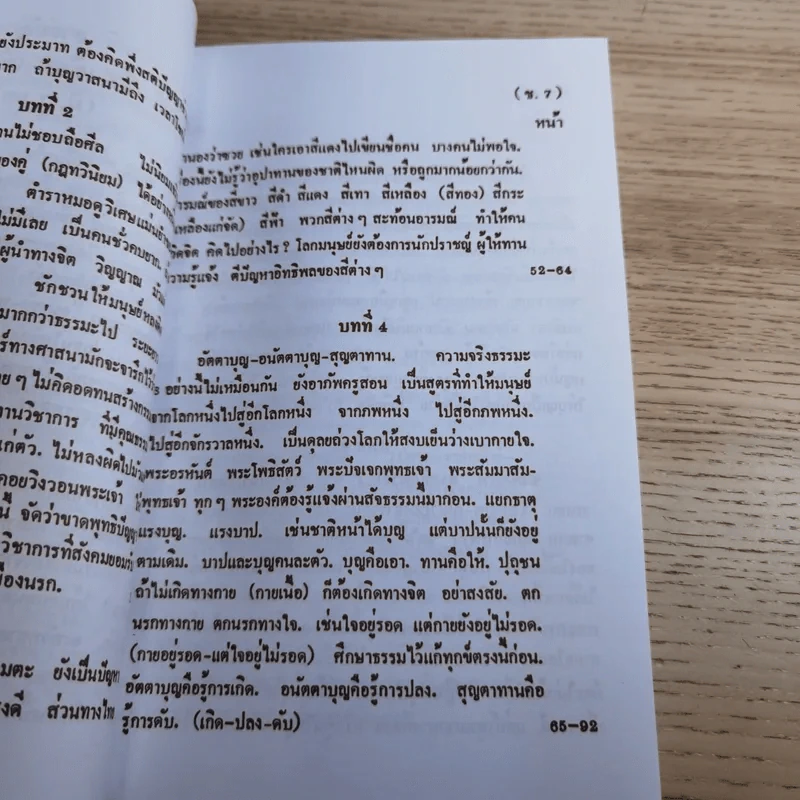 ยังประมาท ต้องคิดพึ่งสติปัญญา
ถ้าบุญวาสนามีถึง
บทที่ 2
านไม่ชอบถือศีล
ของคู่ (กฎทวินิยม) ได้อย่าง
ตำราหมอดูวิเศษแม่นยำ
ไม่มีเลย เป็นคนชั่วคบยาก
ผู้นำทางจิต วิญญาณ
ชักชวนให้มนุษย์หลงผิด
มากกว่าธรรมะไป ระยะ
ร์ทางศาสนามักจะจารึกไว้
ย ๆ ไม่คิดอดทนสร้าง
านวิชาการ ที่มีคุณธรร
แก่ตัว. ไม่หลงผิดไป
คอยวิงวอนพระเจ้า
นี้ จัดว่าขาดพุทธิปัญญ
วิชาการที่สังคมยอมร
มืองนรก.
มตะ ยังเป็นปัญหา
งดี ส่วนทางไท
(ช. 7)
หน้า
านองว่าซวย เช่นใครเอาสีแดงไปเขียนชื่อคน บางคนไม่พอใจ.
่องนี้ยังไม่รู้ว่าอุปาทานของชาติไหนผิด หรือถูกมากน้อยกว่ากัน.
ารมณ์ของสีขาว สีดำ สีแดง สีเทา สีเหลือง (สีทอง) สีกระ
เหลืองแก่จัด) สีฟ้า พวกสีต่าง ๆ สะท้อนอารมณ์ ทำให้คน
ิดจิต คิดไปอย่างไร ? โลกมนุษย์ยังต้องการนักปราชญ์ ผู้ให้ทาน
ความรู้แจ้ง ตีปัญหาอิทธิพลของสีต่าง ๆ 52-64
บทที่ 4
อัตตาบุญ-อนัตตาบุญ-สุญตาทาน. ความจริงธรรมะ
อย่างนี้ไม่เหมือนกัน ยังอาภัพครูสอน เป็นสูตรที่ทำให้มนุษย์
จากโลกหนึ่งไปสู่อีกโลกหนึ่ง จากภพหนึ่ง ไปสู่อีกภพหนึ่ง.
ไปสู่อีกจักรวาลหนึ่ง. เป็นดุลยถ่วงโลกให้สงบเย็นว่างเบากายใจ.
พระอรหันต์ พระโพธิสัตว์ พระปัจเจกพุทธเจ้า พระสัมมาสัม-
พุทธเจ้า ทุก ๆ พระองค์ต้องรู้แจ้งผ่านสัจธรรมนี้มาก่อน. แยกธาตุ
แรงบุญ. แรงบาป. เช่นชาติหน้าได้บุญ แต่บาปนั้นก็ยังอยู่
ตามเดิม. บาปและบุญคนละตัว. บุญคือเอา. ทานคือให้. ปุถุชน
ถ้าไม่เกิดทางกาย (กายเนื้อ) ก็ต้องเกิดทางจิต อย่าสงสัย. ตก
นรกทางกาย ตกนรกทางใจ. เช่นใจอยู่รอด แต่กายยังอยู่ไม่รอด.
(กายอยู่รอด-แต่ใจอยู่ไม่รอด) ศึกษาธรรมไว้แก้ทุกข์ตรงนี้ก่อน.
อัตตาบุญคือรู้การเกิด. อนัตตาบุญคือรู้การปลง. สุญตาทานคือ
รู้การดับ. (เกิด-ปลง-ดับ) 65-92